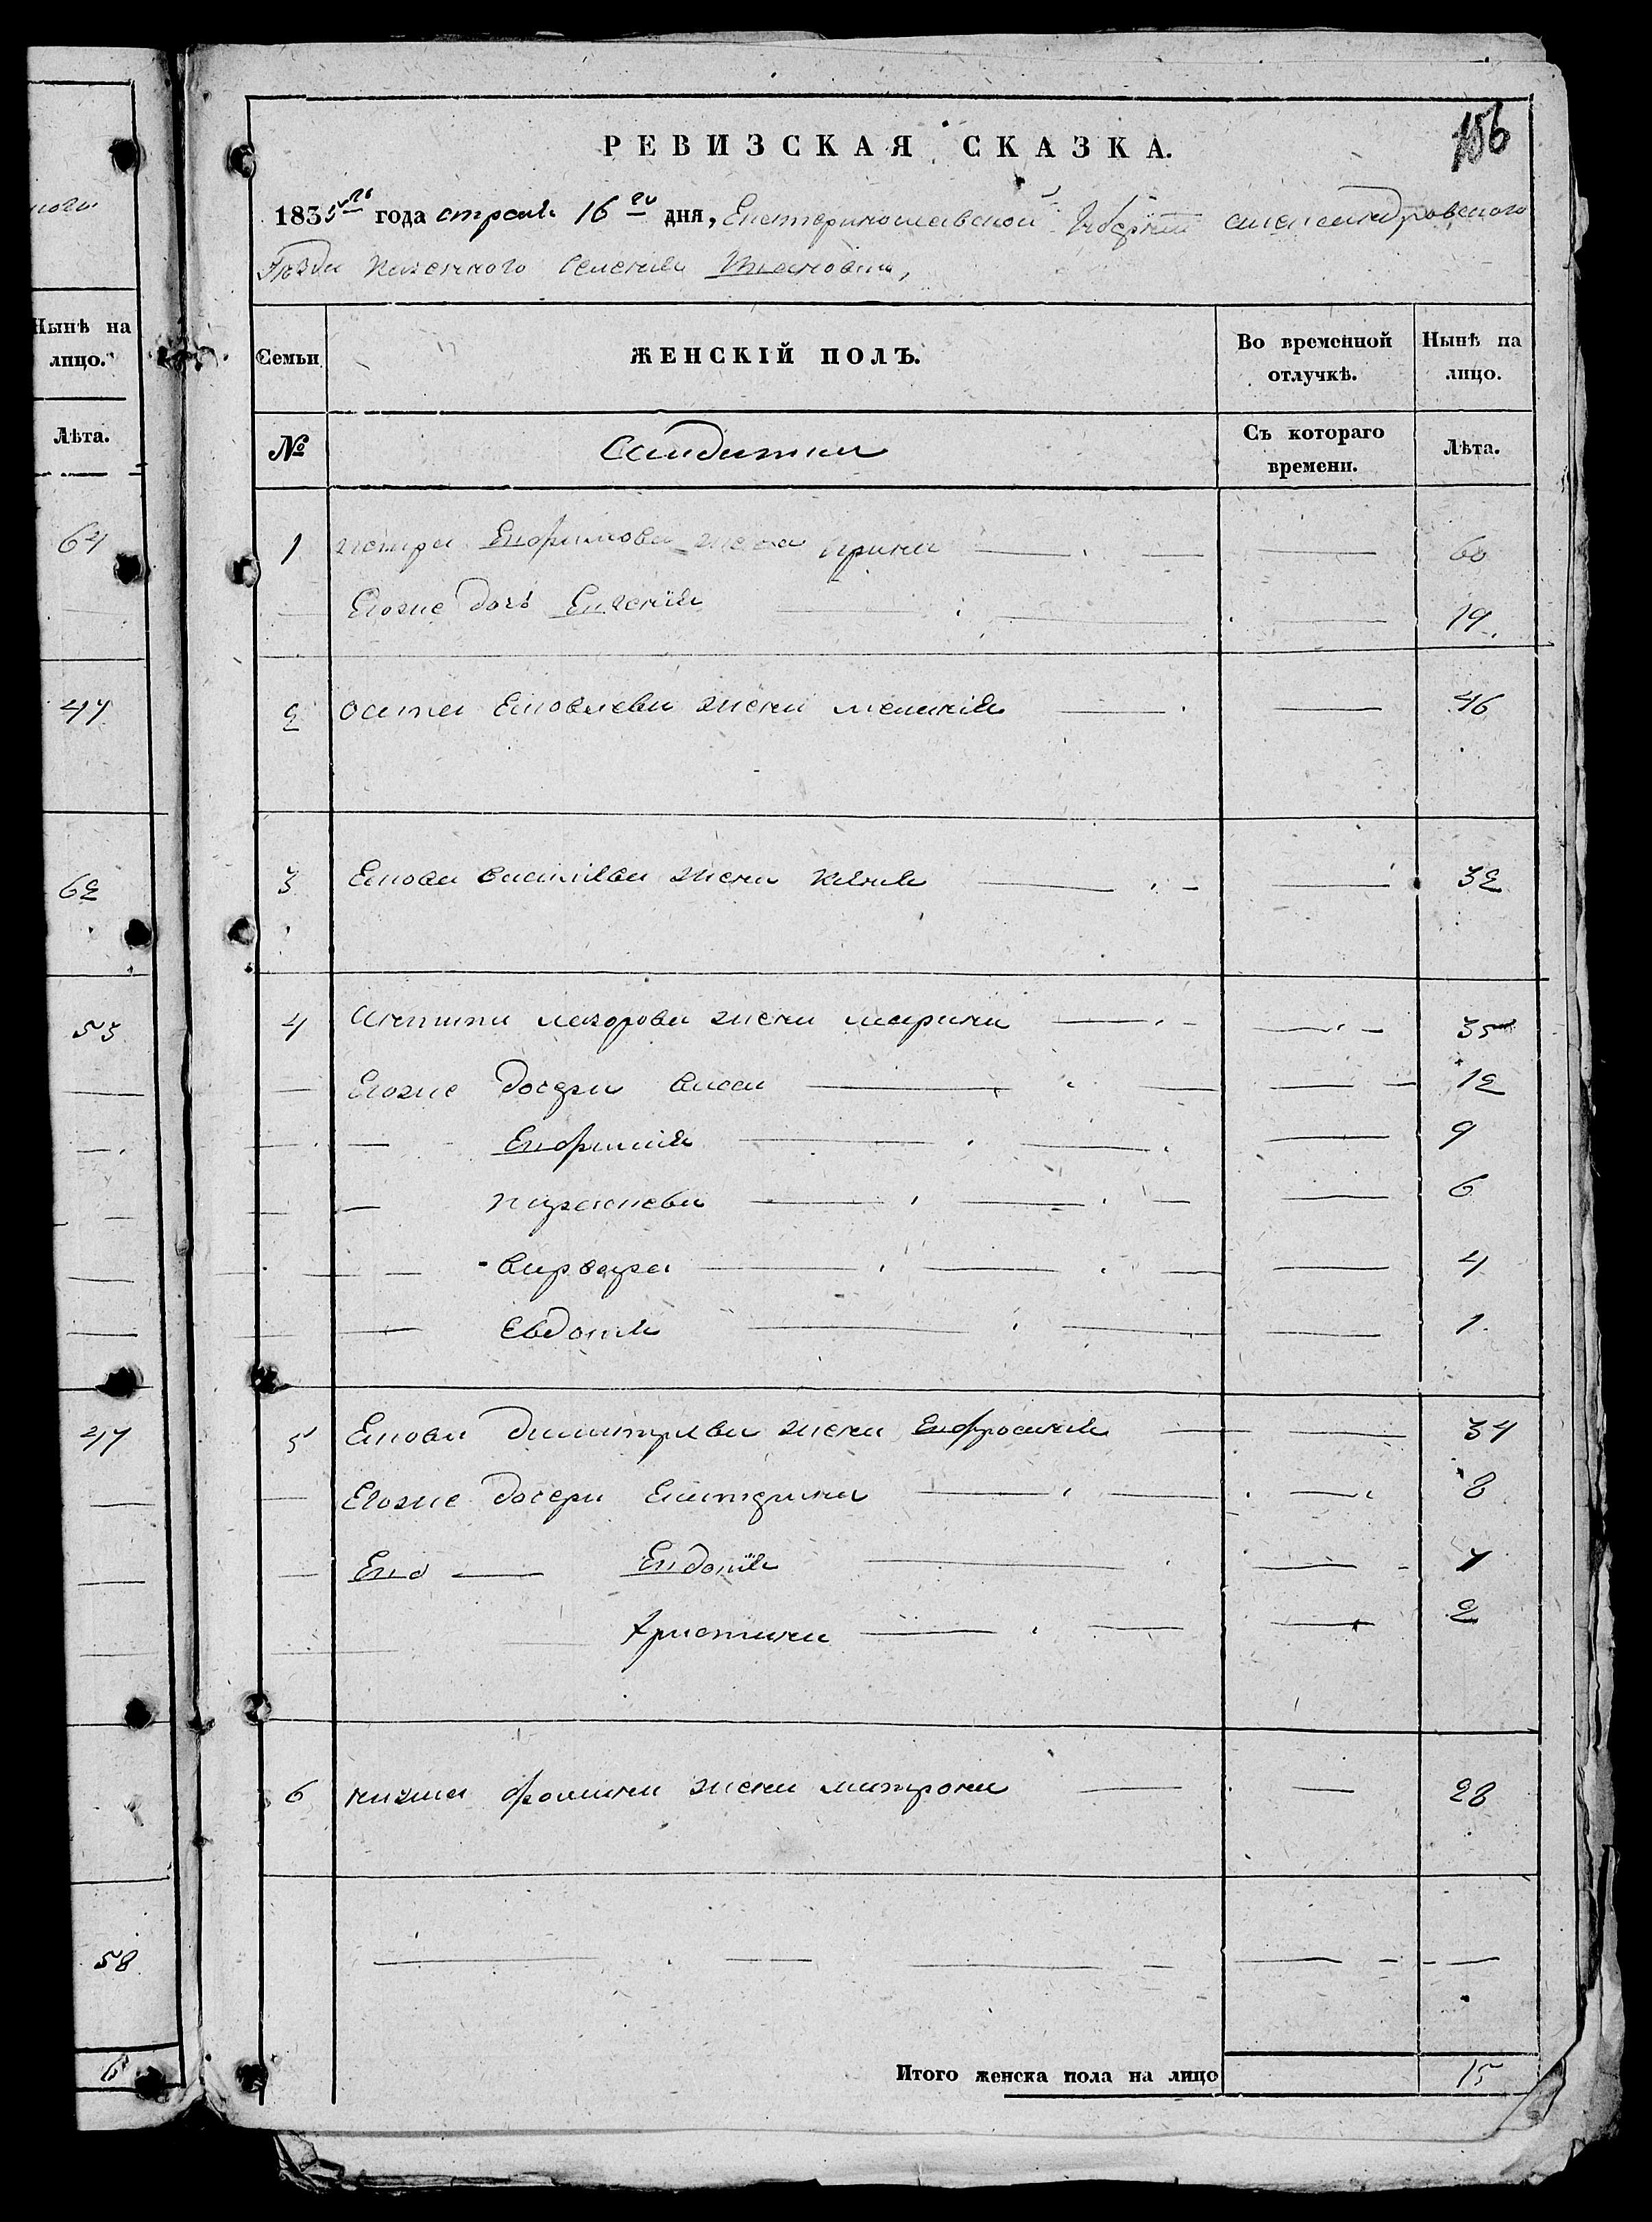 ного
Нынѣ на
лицо.
Лѣта.
64
47
62
53
47
58
6
156
РЕВИЗСКАЯ СКАЗКА.
1835 го года апреля 16 го дня, Екатеринославской Губерніи александровского
Уезда казенного Селенія
Семьи ЖЕНСКІЙ ПОЛЪ. Во временной отлучкѣ. Нынѣ на лицо.
№ Салдатки Съ котораго времени. Лѣта.
1 петра Ефимова жена Ирина — — — 60
Егоже дочь Евгенія — — — 19
2 Остапа Яковлева жена меланія — — 46
3 Якова василева жена ксенія — — — 32
4 Антипа назорова жена марина — — — 35
Егоже дочери васса — — — 12
— Ефимія — — — 9
— параскева — — — 6
— варвара — — — 4
— Евдокія — — — 1
5 Якова димитрива жена Ефросинія — — 34
Егоже дочери Екатерина — — — 8
Его — Евдокія — — 7
Христина — — — 2
6 кизма фомина жена матрона — — 28
— — — — —
Итого женска пола на лицо 15